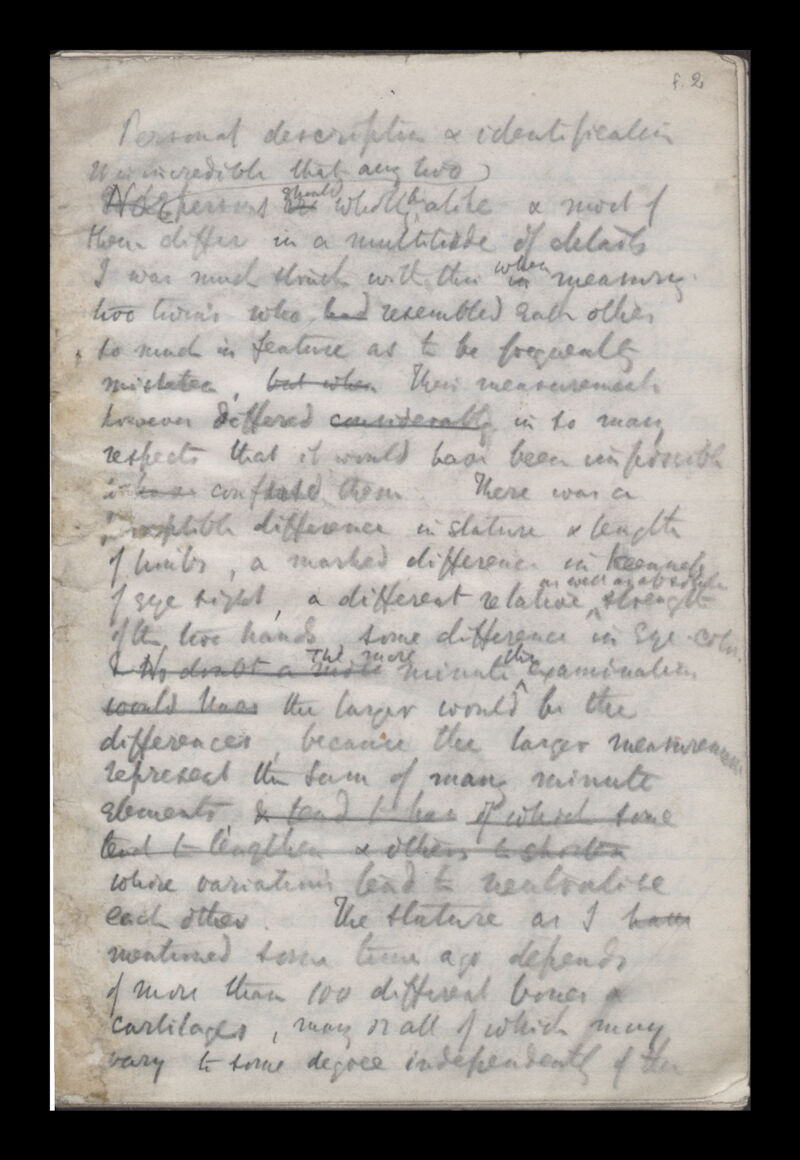 f. 2
Personal description & identification
It is incredible that any two
No persons are should wholly be alike & most of
them differ in a multitude of details
I was much struck with this in when measuring
two twins who had resembled each other
so much in feature as to be frequently
mistaken, but when Their measurements
however differed considerably in so many
respects that it would have been impossible
to confuse them. There was a
perceptible difference in stature & length
of limbs, a marked difference in keenness
of eye sight, a different relative as well as absolute strength
of the two hands, some difference in Eye-colour.
I No doubt a more The more minute the examination
would have the larger would be the
differences, because the larger measurements
represent the sum of many minute
elements & tend to have of which some
tend to lengthen & others to shorten
whose variations tend to neutralise
each other. The stature as I have
mentioned some time ago depends
of more than 100 different bones &
cartilages, many or all of which may
vary to some degree independently of the